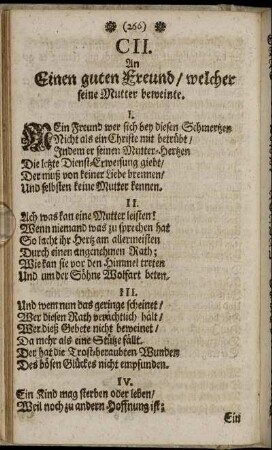 (266)
CII.
An
Einen guten Freund/ welcher
seine Mutter beweinte.
I.
MEin Freund wer sich bey diesen Schmertzen
Nicht als ein Christe mit betrübt/
Indem er seinen Mutter-Hertzen
Die letzte Dienst-Erweisung giebt/
Der muß von keiner Liebe brennen/
Und selbsten keine Mutter kennen.
II.
Ach was kan eine Mutter leisten!
Wenn niemand was zu sprechen hat
So lacht ihr Hertz am allermeisten
Durch einen angenehmen Rath;
Wie kan sie vor den Himmel treten
Und um der Söhne Wolfart beten.
III.
Und wem nun das geringe scheinet/
Wer diesen Rath verächtlich hält/
Wer dieß Gebete nicht beweinet/
Da mehr als eine Stütze fällt.
Der hat die Trostberaubten Wunden
Des bösen Glückes nicht empfunden.
IV.
Ein Kind mag sterben oder leben/
Weil noch zu andern Hoffnung ist;
Ein